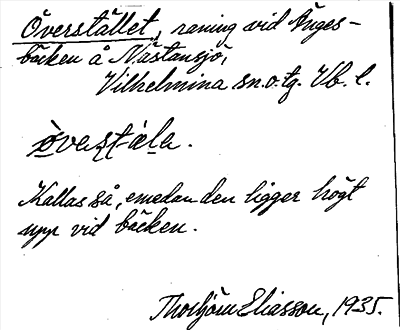 Överstället, raning vid Änges-
bäcken å Nästansjö,
Vilhelmina sn.o.tg. Vb. l.
òvestála.
Kallas så, emedan den ligger högt
upp vid bäcken.
Thorbjörn Eliasson, 1935.